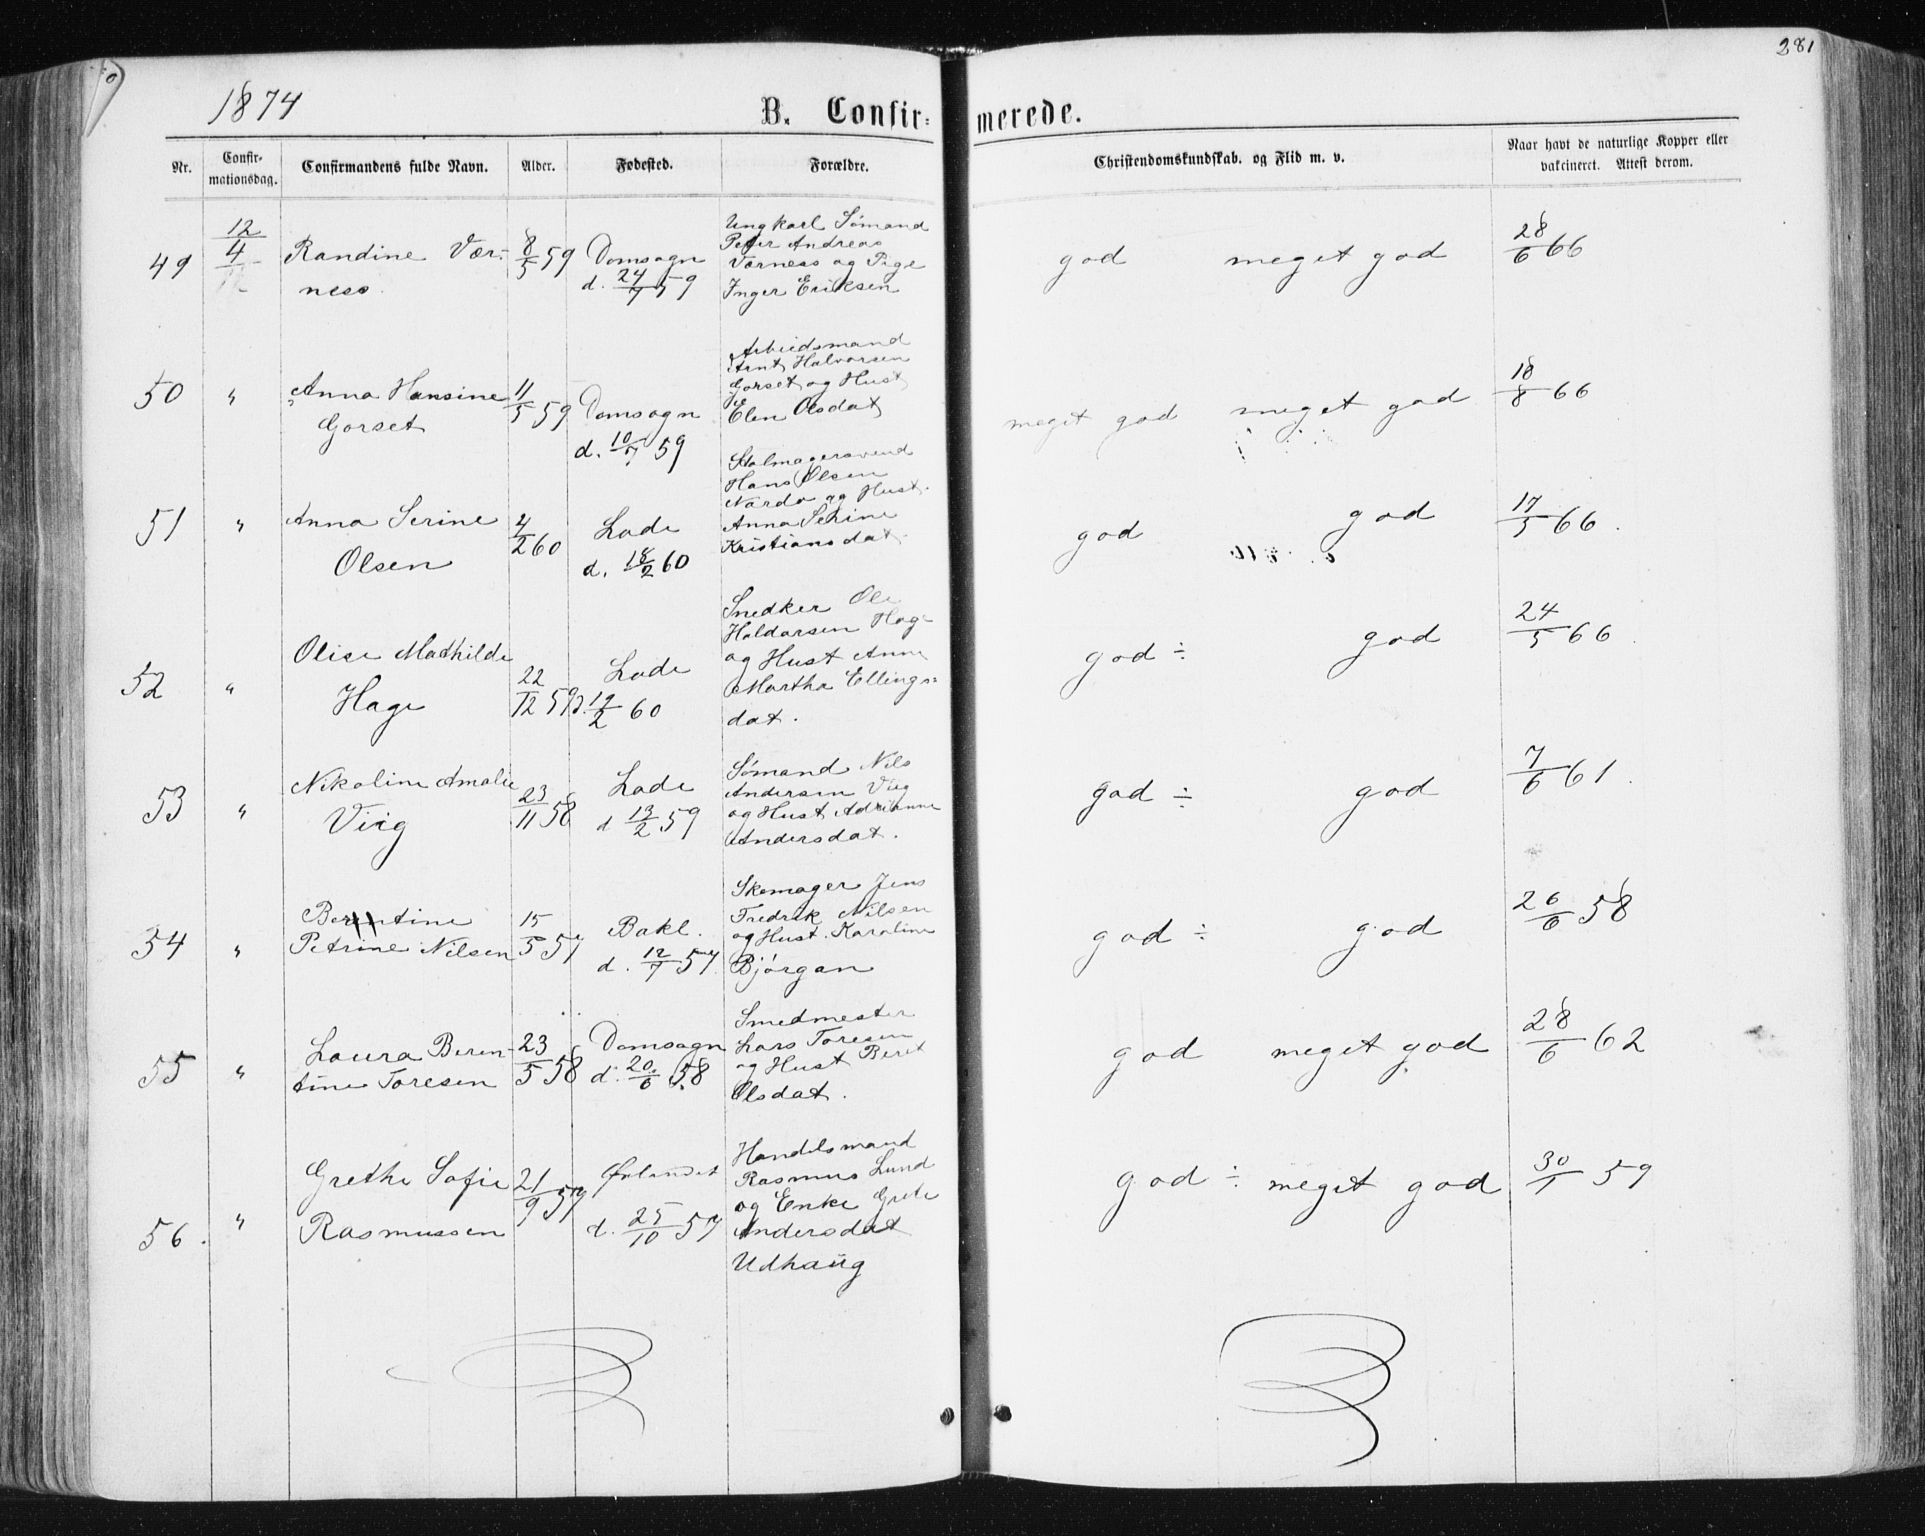 281
1874
B. Confir-
merede.
Nr.
Confir-
mationsdag.
Confirmandens fulde Navn.
Alder.
Fødested.
Forældre.
Christendomskundskab. og Flid m. v.
Naar havt de naturlige Kopper eller
vakcineret. Attest derom.
49
12/4
Randine Vær-
ness
8/5 59
Domsogn
d. 24/7 59
Ungkarl Sömand
Peter Andreas
Værness og Pige
Inger Eriksen
god
meget god
28/6 66
50
"
Anna Hansine
Gorset
11/5 59
Domsogn
d. 10/7 59
Arbeidsmand
Arnt Halvorsen
Gorset og Hust
Elen Olsdat
meget god
meget god
18/8 66
51
"
Anna Serine
Olsen
4/2 60
Lade
d. 18/2 60
Salmagersvend
Hans Olsen
Nardo og Hust.
Anna Serine
Kristiansdat
god
god
17/5 66.
52
"
Olise Mathilde
Hage
22/12 59
Lade
d. 19/2 60
Snedker Ole
Haldorsen Hage
og Hust Anne
Martha Ellings-
dat.
god ÷
god
24/5 66.
53
"
Nikoline Amalie
Viig
23/11 58
Lade
d 13/2 59
Sömand Nils
Andersen Vieg
og Hust Adrianne
Andersdat.
god ÷
god
7/6 61.
54
"
Berntine
Petrine Nilsen
15/5 57
Bakl.
d. 12/7 57
Skomager Jens
Fredrik Nilsen
og Hust. Karoline
Björgan
god ÷
god
26/6 58
55
"
Laura Beren-
tine Toresen
23/5 58
Domsogn
d. 20/6 58
Smedmester
Lars Toresen
og Hust Beret
Olsdat.
god
meget god
28/6 62
56.
"
Grethe Sofie
Rasmussen
21/9 57
Ørlandet
d. 25/10 57
Handelsmand
Rasmus Lund
og Enke Grete
Andersdat
Udhaug
god ÷
meget god
30/1 59